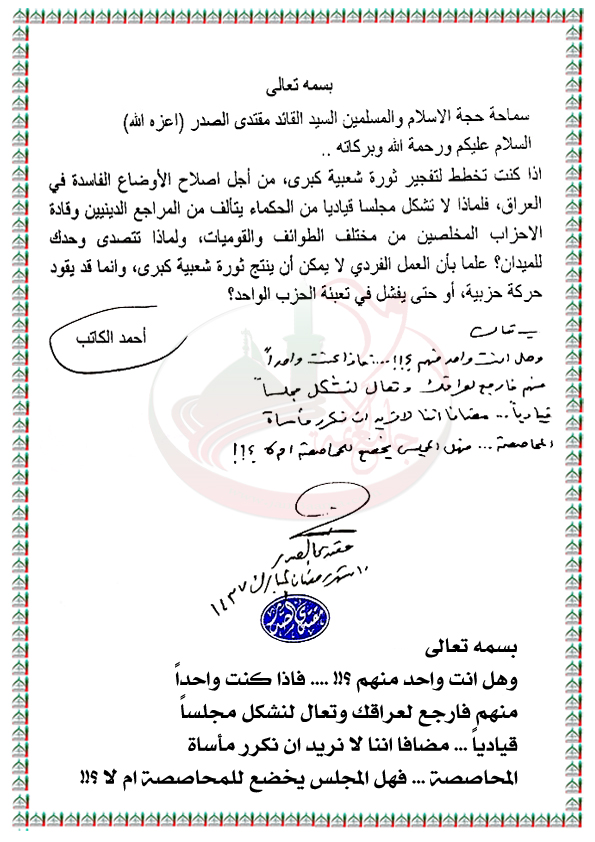 بسمه تعالى
سماحة حجة الاسلام والمسلمين السيد القائد مقتدى الصدر (اعزه الله)
السلام عليكم ورحمة الله وبركاته ..
اذا كنت تخطط لتفجير ثورة شعبية كبرى، من أجل اصلاح الأوضاع الفاسدة في
العراق، فلماذا لا تشكل مجلسا قياديا من الحكماء يتألف من المراجع الدينيين وقادة
الاحزاب المخلصين من مختلف الطوائف والقوميات، ولماذا تتصدى وحدك
للميدان؟ علما بأن العمل الفردي لا يمكن أن ينتج ثورة شعبية كبرى، وانما قد يقود
حركة حزبية، أو حتى يفشل في تعبئة الحزب الواحد؟
أحمد الكاتب
وهل انت واحد منهم ؟!! .... فاذا كنت واحداً
منهم فارجع لعراقك وتعال لنشكل مجلساً
قيادياً ... مضافا اننا لا نريد ان نكرر مأساة
المحاصصة ... فهل المجلس يخضع للمحاصصة ام لا ؟!!
مقتدى الصدر
١٠ شهر رمضان المبارك ١٤٣٧
مقتدى الصدر
بسمه تعالى
وهل انت واحد منهم ؟!! .... فاذا كنت واحداً
منهم فارجع لعراقك وتعال لنشكل مجلساً
قيادياً ... مضافا اننا لا نريد ان نكرر مأساة
المحاصصة ... فهل المجلس يخضع للمحاصصة ام لا ؟!!